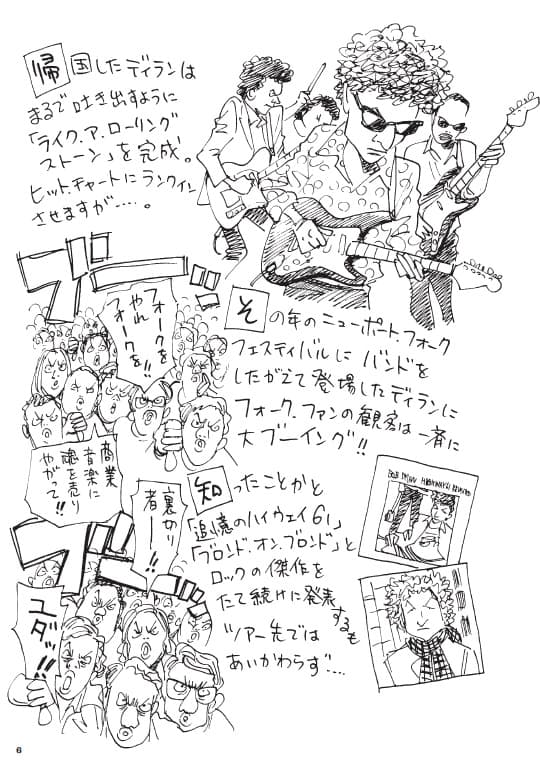 帰国したディランは
まるで吐き出すように
「ライク.ア.ローリング
ストーン」を完成。
ヒットチャートにランクイン
させますが……。
ブー
フォークを
やれ
フォークを!!
その年のニューポート.フォーク
フェスティバルに バンドを
したがえて登場したディランに
フォーク.ファンの観客は一斉に
大ブーイング!!
商業
音楽に
魂を売り
やがて!!
裏切り
者ー!!
ブー
ユダッ!!
知ったことかと
「追憶のハイウェイ61」
「ブロンド.オン.ブロンド」と
ロックの傑作を
たて続けに発表
するも
ツアー先では
あいかわらず……
BOB DYLAN HIGHWAY 61 REVISITED
6